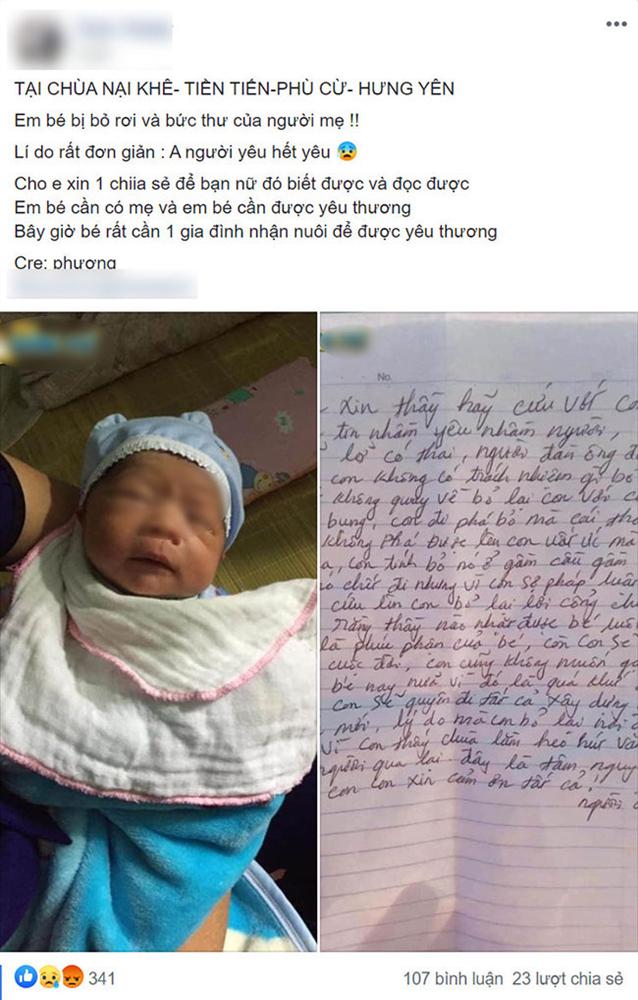 TẠI CHÙA NẠI KHÊ- TIỀN TIẾN-PHÙ CỪ- HƯNG YÊN
Em bé bị bỏ rơi và bức thư của người mẹ !!
Lí do rất đơn giản : A người yêu hết yêu 😰
Cho e xin 1 chiia sẻ để bạn nữ đó biết được và đọc được
Em bé cần có mẹ và em bé cần được yêu thương
Bây giờ bé rất cần 1 gia đình nhận nuôi để được yêu thương
Cre: phương
No.
Xin thầy hãy cứu vớt
tin nhầm yêu nhầm người,
lỡ có thai, người đàn ông
con không có trách nhiệm gì bỏ
không quay về bỏ lại con với
bụng, con đi phá bỏ mà cái
không phá được lên con uất ức mà
con tính bỏ nó ở gầm cầu gầm
chứ đi nhưng vì con sợ pháp luật
cứu lên con bỏ lại lời cổng
rằng thầy nào nhặt được bé
là phúc phận của bé, còn con sẽ
cuộc đời, con cũng không muốn
bé nay nữa vì đó là quá khứ
con sẽ quyên đi tất cả xây dựng
mới, lý do mà con bỏ lại nơi
vì con thấy chùa lắm heo hút
người qua lại. đây là tâm nguy
con con xin cảm ơn tất cả,
người
341
107 bình luận 23 lượt chia sẻ